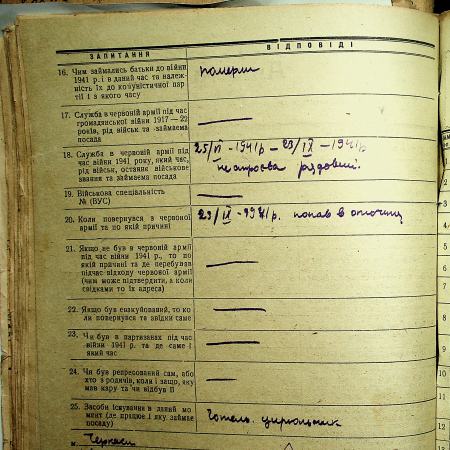 ЗАПИТАННЯ ВІДПОВІДІ
16. Чим займались батьки до війни
1941 р. і в даний час та належ-
ність їх до комуністичної пар-
тії і з якого часу
померли
17. Служба в червоній армії під час
громадянської війни 1917—22
років, рід військ та займаєма
посада
18. Служба в червоній армії під
час війни 1941 року, який час,
рід військ, останнє військове
звання та займаєма посада
25/VI -1941р - 23/IX -1941р
рядовий.
19. Військова спеціальність
№ (ВУС)
20. Коли повернувся в червоної
армії та по якій причині
23/IX -1941р. попав в оточище
21. Якщо не був в червоній армії
під час війни 1941 р., то по
якій причині та де перебував
підчас відходу червоної армії
(чим може підтвердити, а коли
свідками то їх адреса)
22. Якщо був евакуйований, то ко
ли повернувся та звідки саме
23. Чи був в партизанах під час
війни 1941 р. та де саме і
який час
24. Чи був репресований сам, або
хто з родичів, коли і защо, яку
мав кару та чи відбув її
25. Засоби існування в даний мо
мент (де працює і яку займає
посаду)
Готель. цирюльник
м. Черкаси